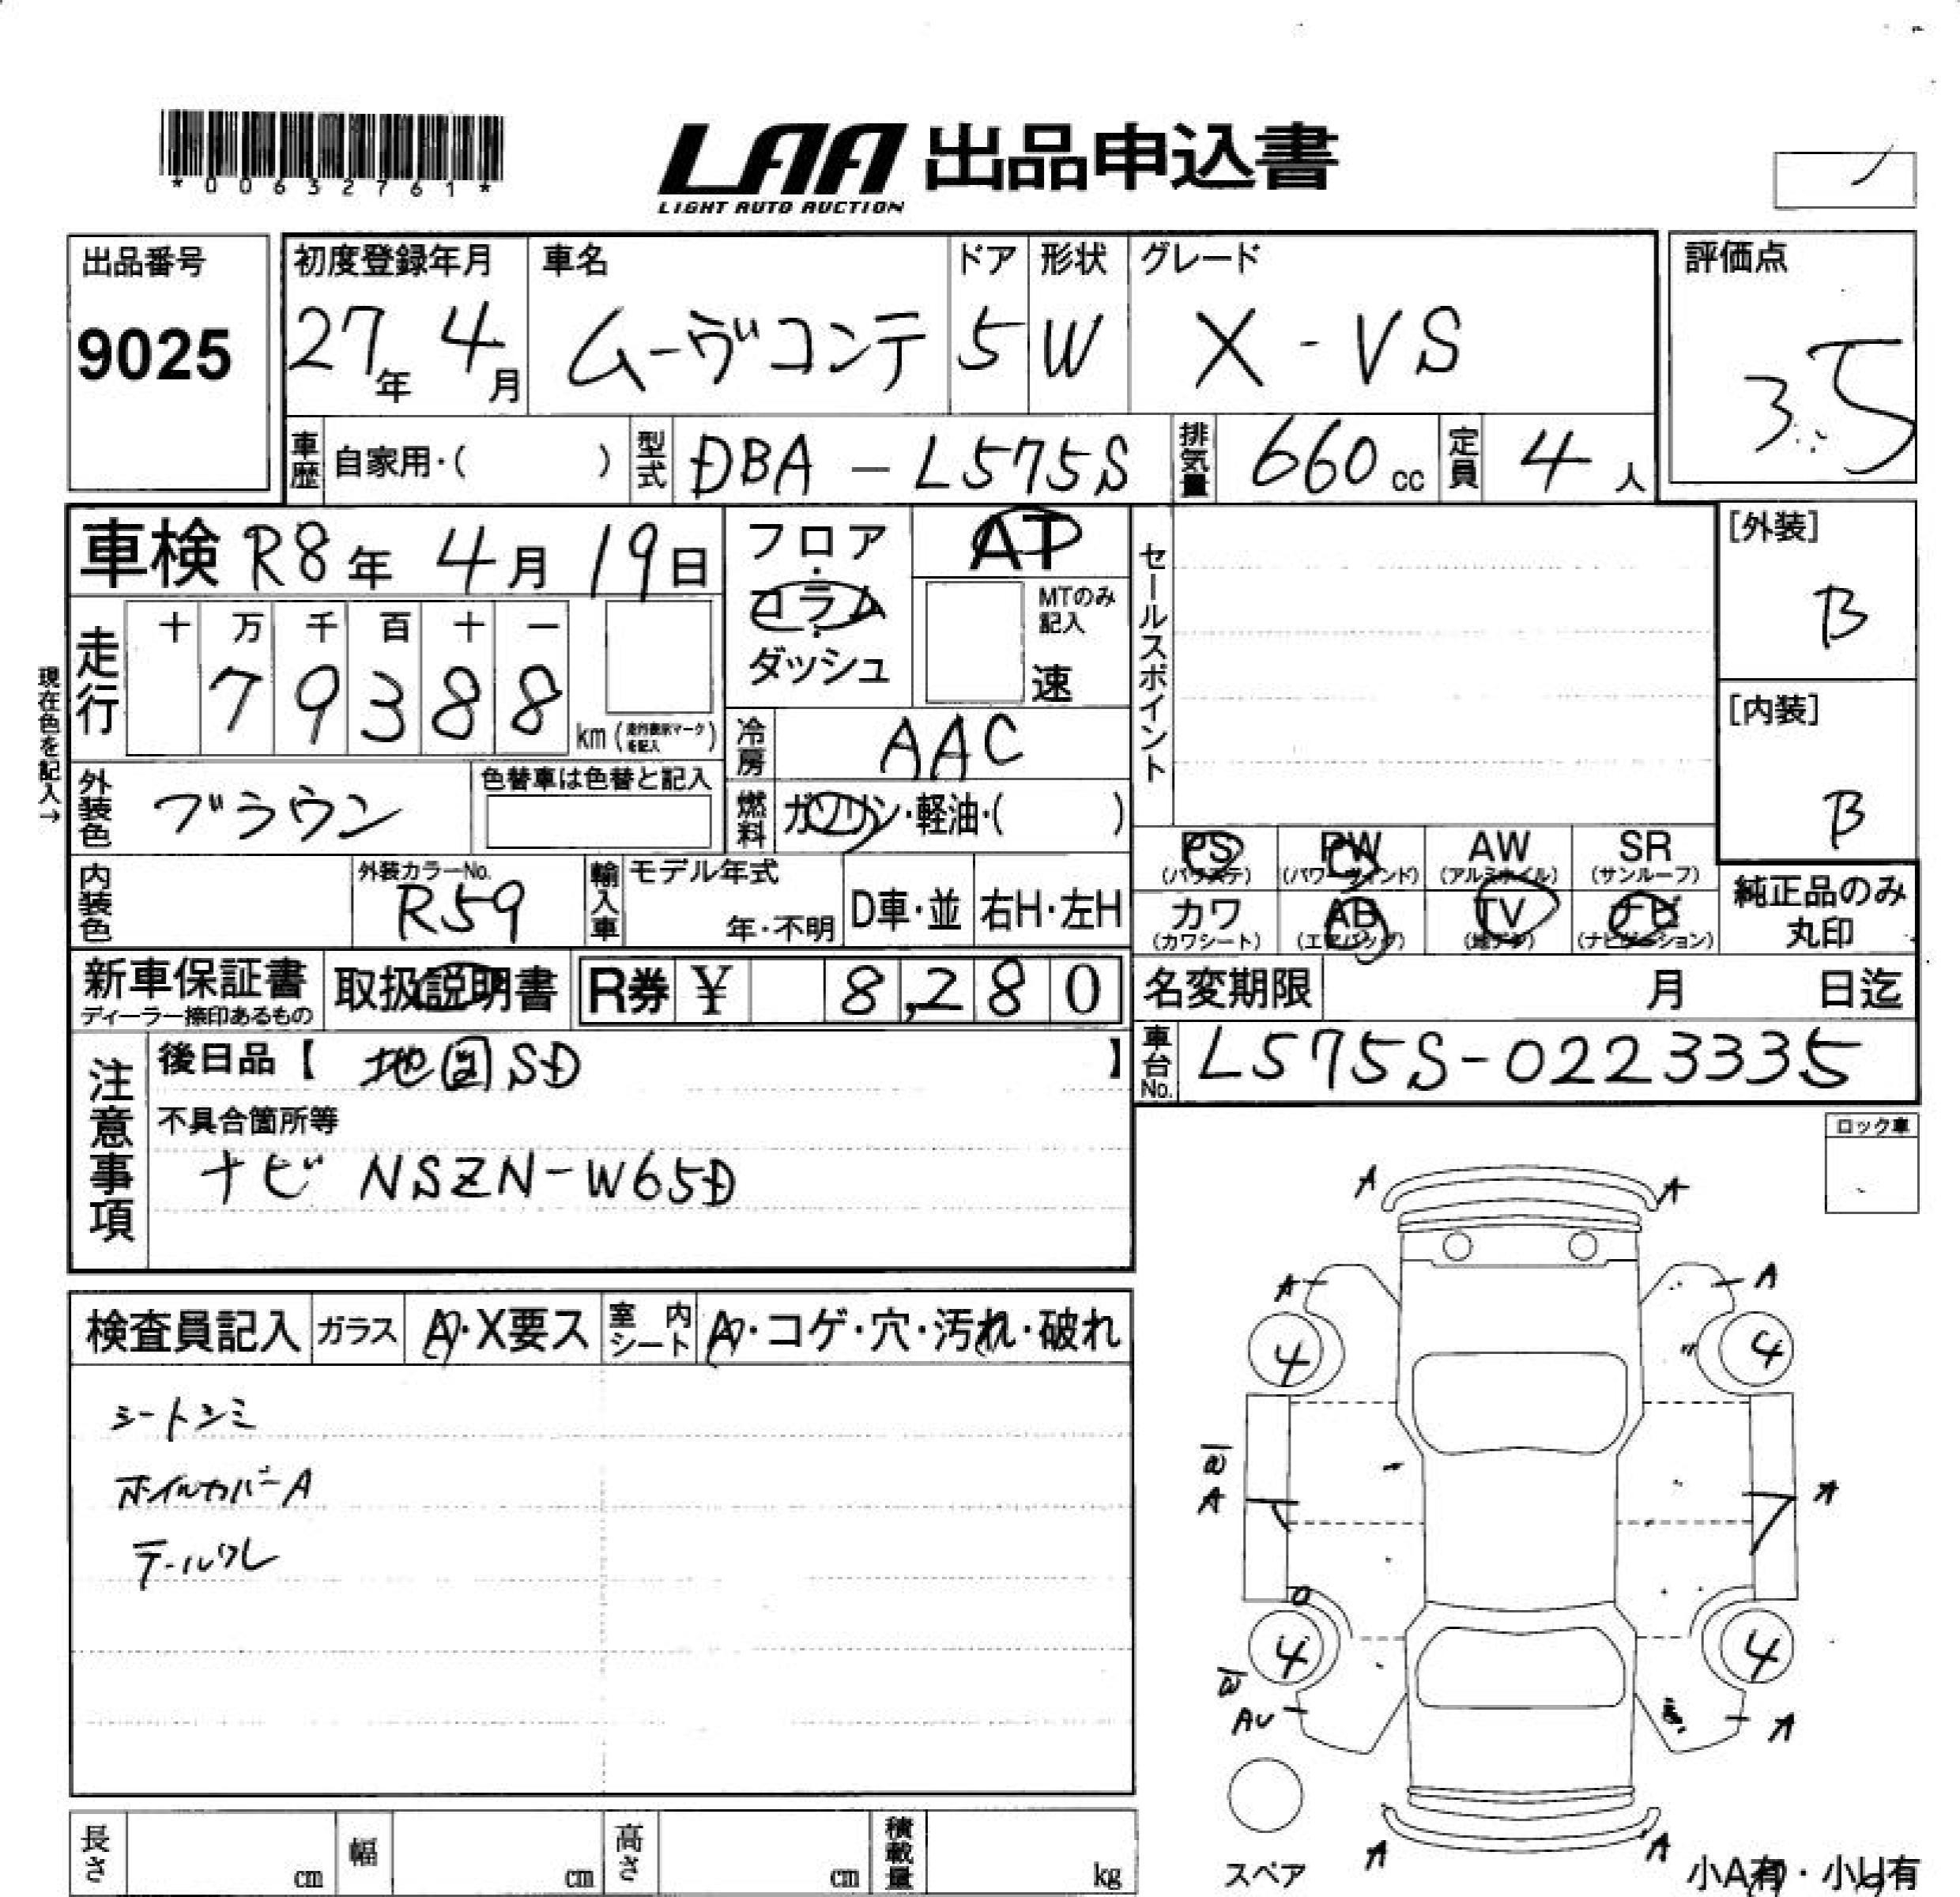 *00632761*
LAA 出品申込書
LIGHT AUTO AUCTION
出品番号
9025
初度登録年月 車名 ドア 形状 グレード
27年 4月 ムーヴコンテ 5 W X-VS
評価点
3.5
車歴 自家用・( ) 型式 DBA-L575S 排気量 660cc 定員 4人
車検 R8年 4月 19日
フロア・コラム・ダッシュ
AT
MTのみ記入
速
セールスポイント
[外装]
B
[内装]
B
現在色を記入→
走行 十 万 千 百 十 一
79388 km (走行表示マークを記入)
冷房 AAC
外装色 ブラウン 色替車は色替と記入
燃料 ガソリン・軽油・( )
内装色 外装カラーNo. R59
輸入車 モデル年式 年・不明 D車・並 右H・左H
PS PW AW SR
(パワステ) (パワーウィンド) (アルミホイル) (サンルーフ)
カワ AB TV ナビ
(カワシート) (エアバッグ) (地デジ) (ナビゲーション)
純正品のみ
丸印
新車保証書 取扱説明書 R券 ¥ 8,280
ディーラー捺印あるもの
名変期限 月 日迄
車台No. L575S-0223335
注意事項
後日品【 地図SD 】
不具合箇所等
ナビ NSZN-W65D
ロック車
検査員記入 ガラス A・X要ス 室内シート A・コゲ・穴・汚れ・破れ
シートシミ
ホイルカバーA
テールワレ
A A
A A
4 4
W
A A
4 4
W
AU A
スペア
A A
小A有・小U有
長さ cm 幅 cm 高さ cm 積載量 kg